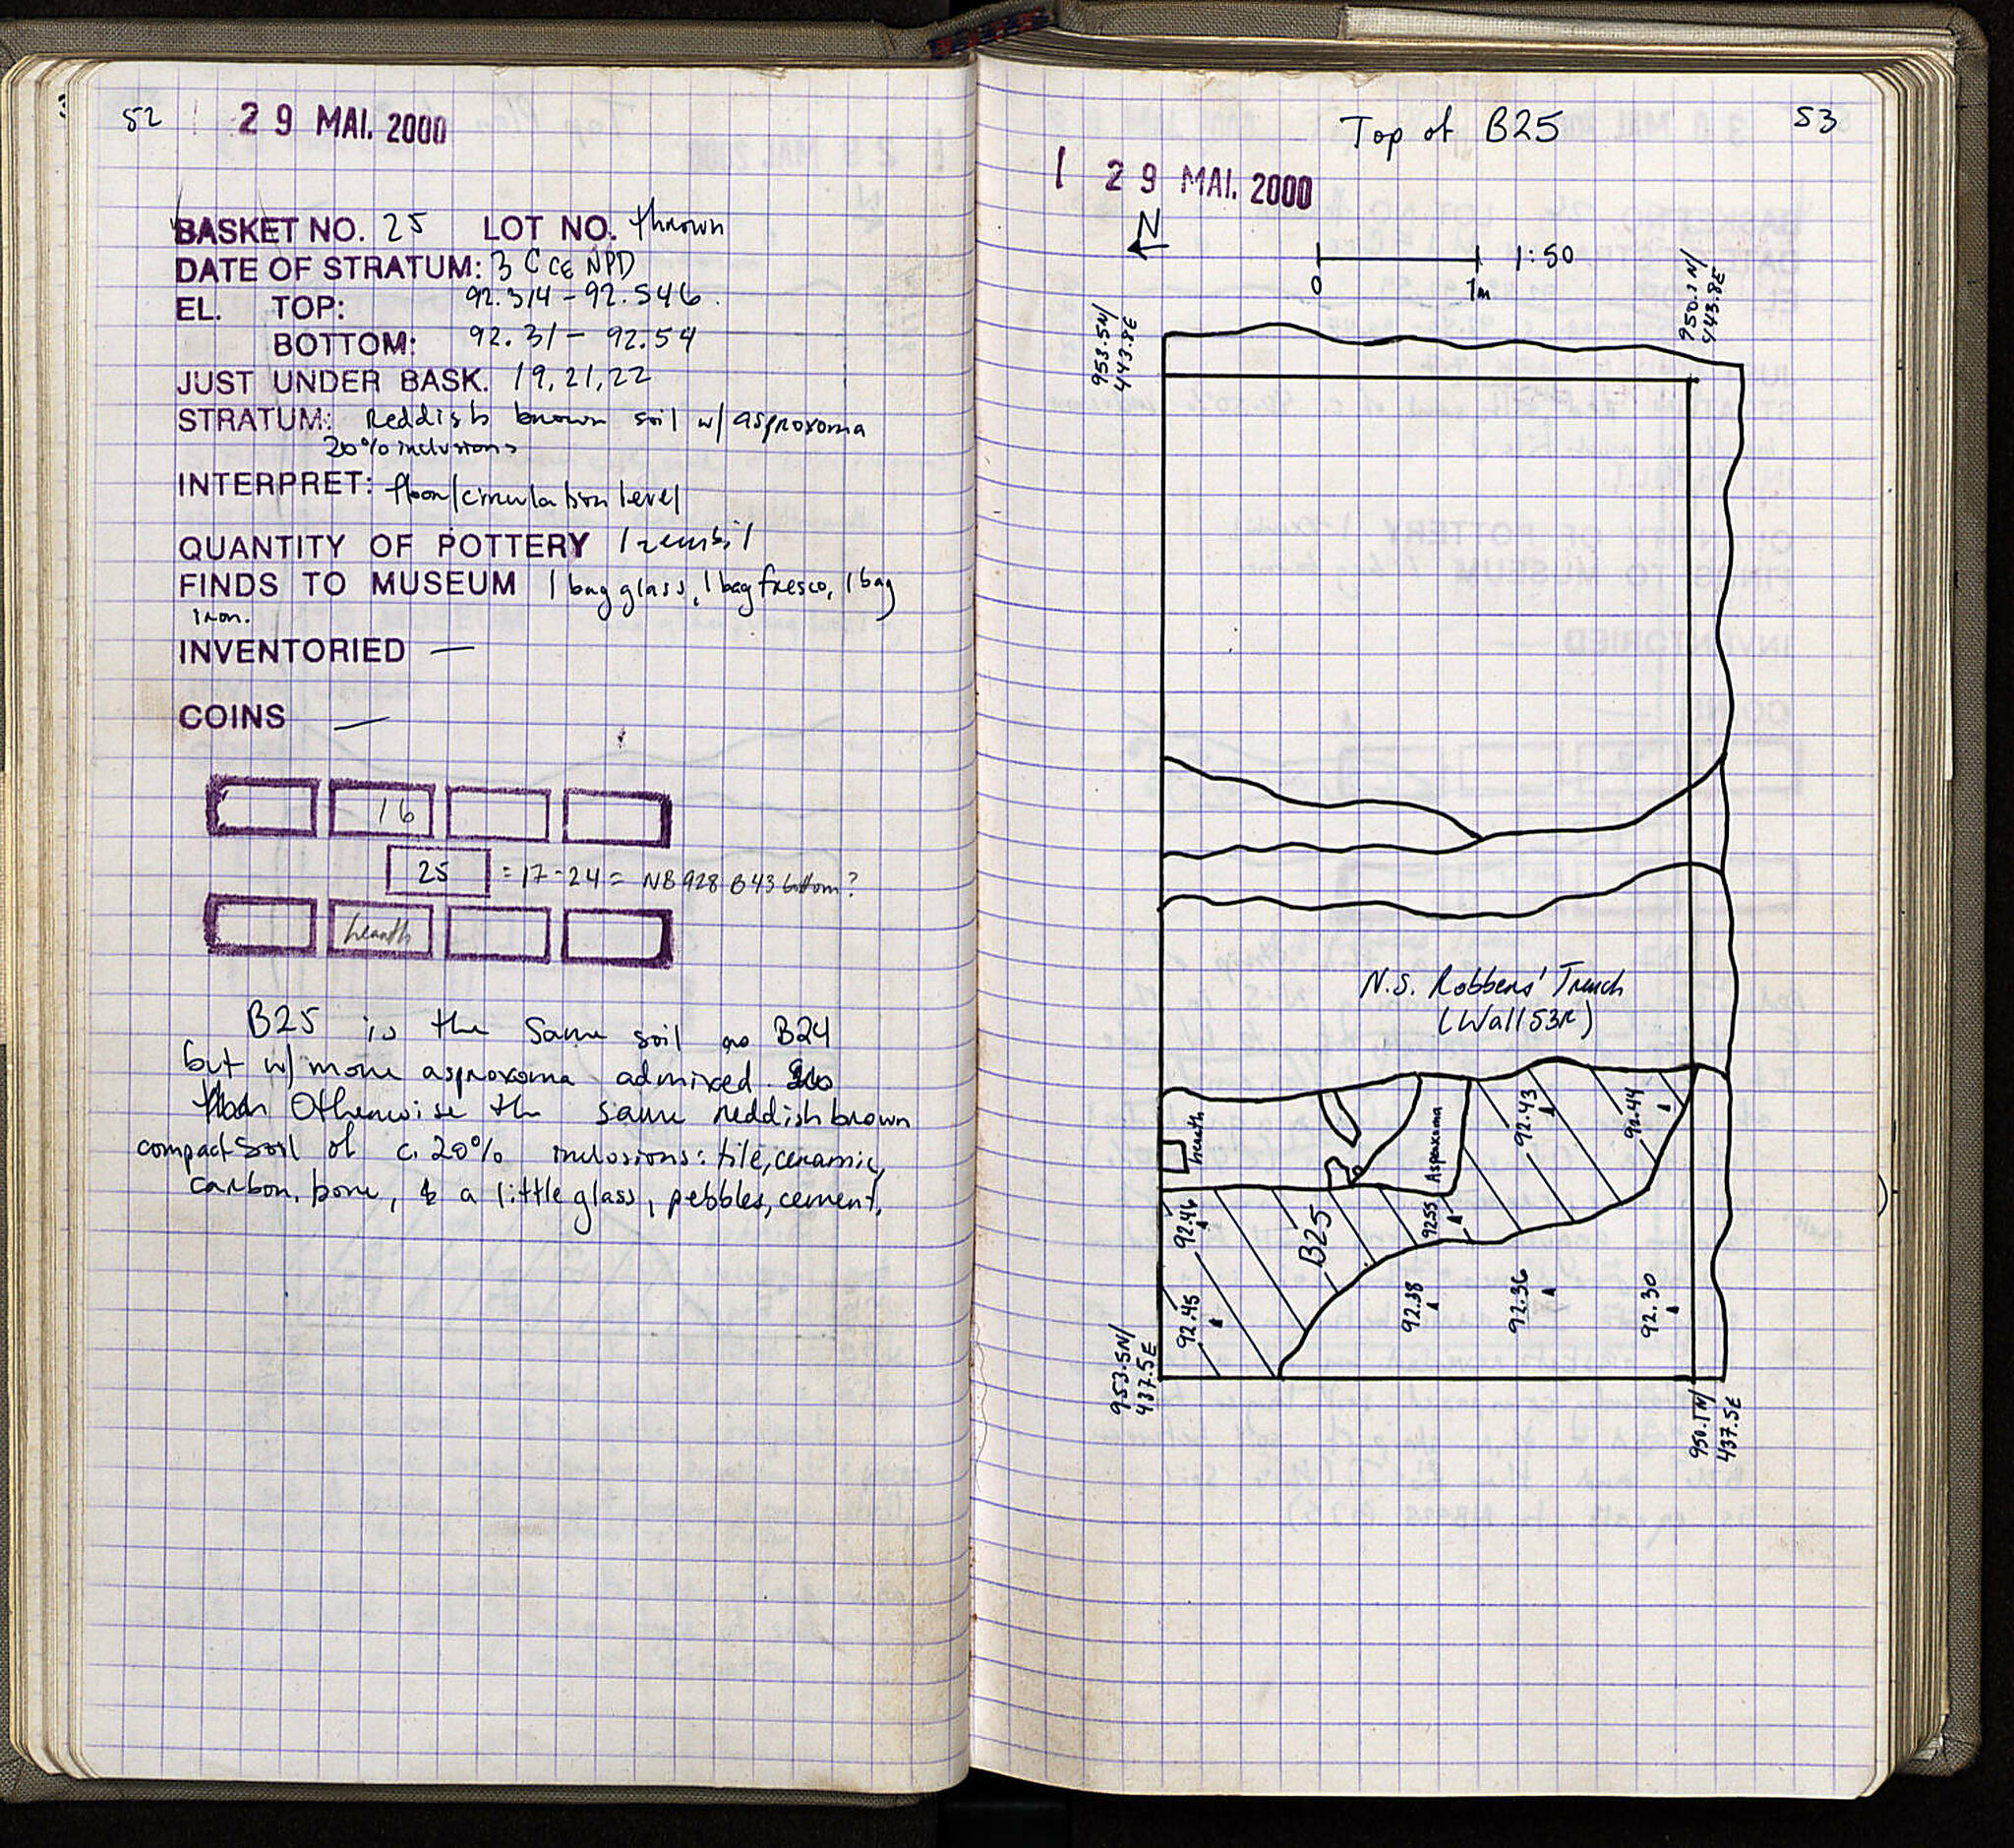 52
29 MAI. 2000
BASKET NO. 25 LOT NO. thrown
DATE OF STRATUM: 3 C CE NPD
EL. TOP: 92.314 - 92.546.
BOTTOM: 92.31 - 92.54
JUST UNDER BASK. 19, 21, 22
STRATUM: Reddish brown soil w/ asproxoma
20% inclusions
INTERPRET: floor/circulation level
QUANTITY OF POTTERY 1 zembil
FINDS TO MUSEUM 1 bag glass, 1 bag fresco, 1 bag
iron.
INVENTORIED —
COINS —
16
25 = 17 - 24 = NB 928 B43 bottom?
hearth
B25 is the same soil as B24
but w/ more asproxoma admixed.
Otherwise the same reddish brown
compact soil of c. 20% inclusions: tile, ceramic,
carbon, bone, & a little glass, pebbles, cement.
53
Top of B25
1 29 MAI. 2000
N
1:50
0 1m
953.5N/
443.8E
950.1N/
443.8E
N.S. Robbers' Trench
(Wall 53R)
hearth
Asproxoma
92.43
92.44
92.46
B25
92.55
92.45
92.38
92.36
92.30
953.5N/
437.5E
950.1N/
437.5E